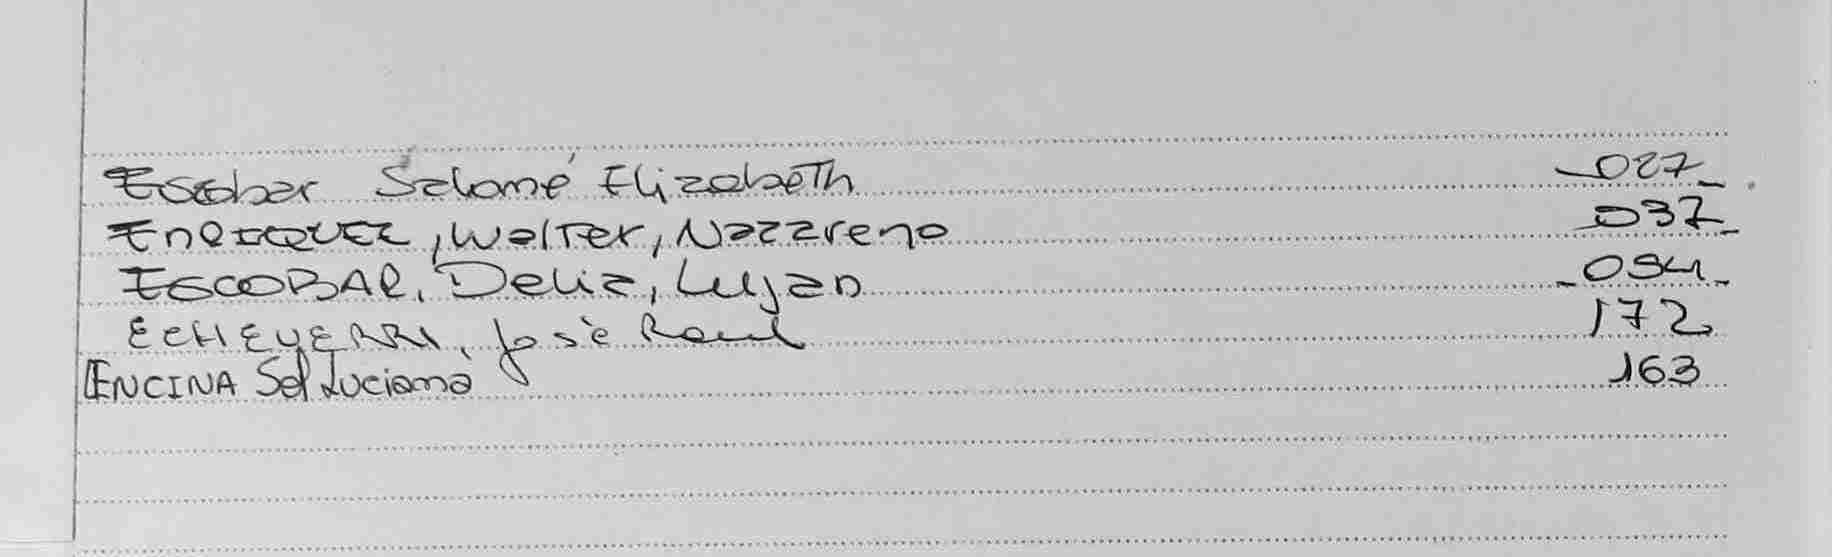 Escobar Salomé Elizabeth 027_
EnRIQUEZ, Walter, Nazareno 037_
ESCOBAR, Delia, Lujan _094_
ECHEVERRI, José Raul 172
ENCINA Sol Luciana 163